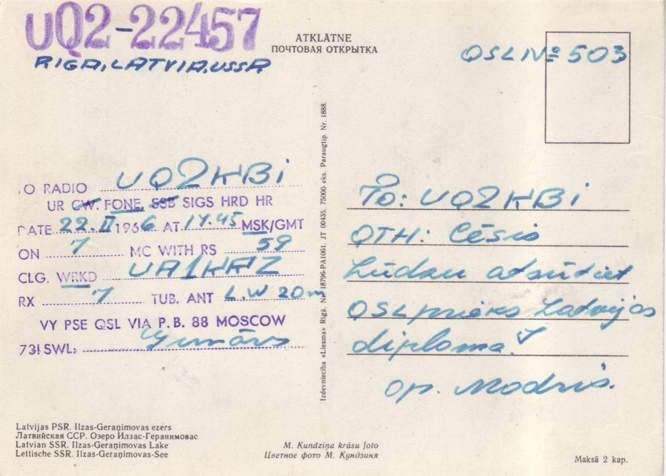 UQ2-22457
RIGA, LATVIA, USSR
ATKLĀTNE
ПОЧТОВАЯ ОТКРЫТКА
QSL № 503
TO RADIO UQ2KBI
UR CW. FONE, SSB SIGS HRD HR
DATE 22. II 1966 AT 14.45 MSK/GMT
ON 7 MC WITH RS 59
CLG. WRKD UA1KKZ
RX 7 TUB. ANT L.W 20m
VY PSE QSL VIA P.B. 88 MOSCOW
73! SWL: Gunārs
To: UQ2KBI
QTH: Cēsis
Lūdzu atsūtiet
QSL priekš Latvijas
diploma!
op. Modris.
Izdevniecība «Liesma» Rīgā. Nr. 18796-PA1061. JT 00435. 75000 eks. Paraugtip. Nr. 1888.
Latvijas PSR. Ilzas-Geraņimovas ezers
Латвийская ССР. Озеро Илзас-Геранимовас
Latvian SSR. Ilzas-Geraņimovas Lake
Lettische SSR. Ilzas-Geraņimovas-See
M. Kundziņa krāsu foto
Цветное фото М. Кундзиня
Maksā 2 kap.